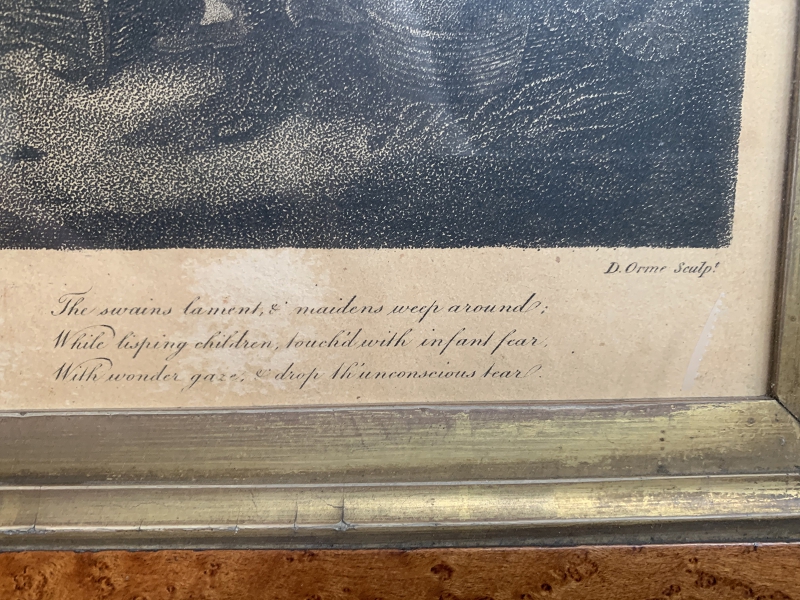 D. Orme Sculpt
The swains lament, & maidens weep around;
While lisping children, touch'd with infant fear,
With wonder gaze, & drop th'unconscious tear.